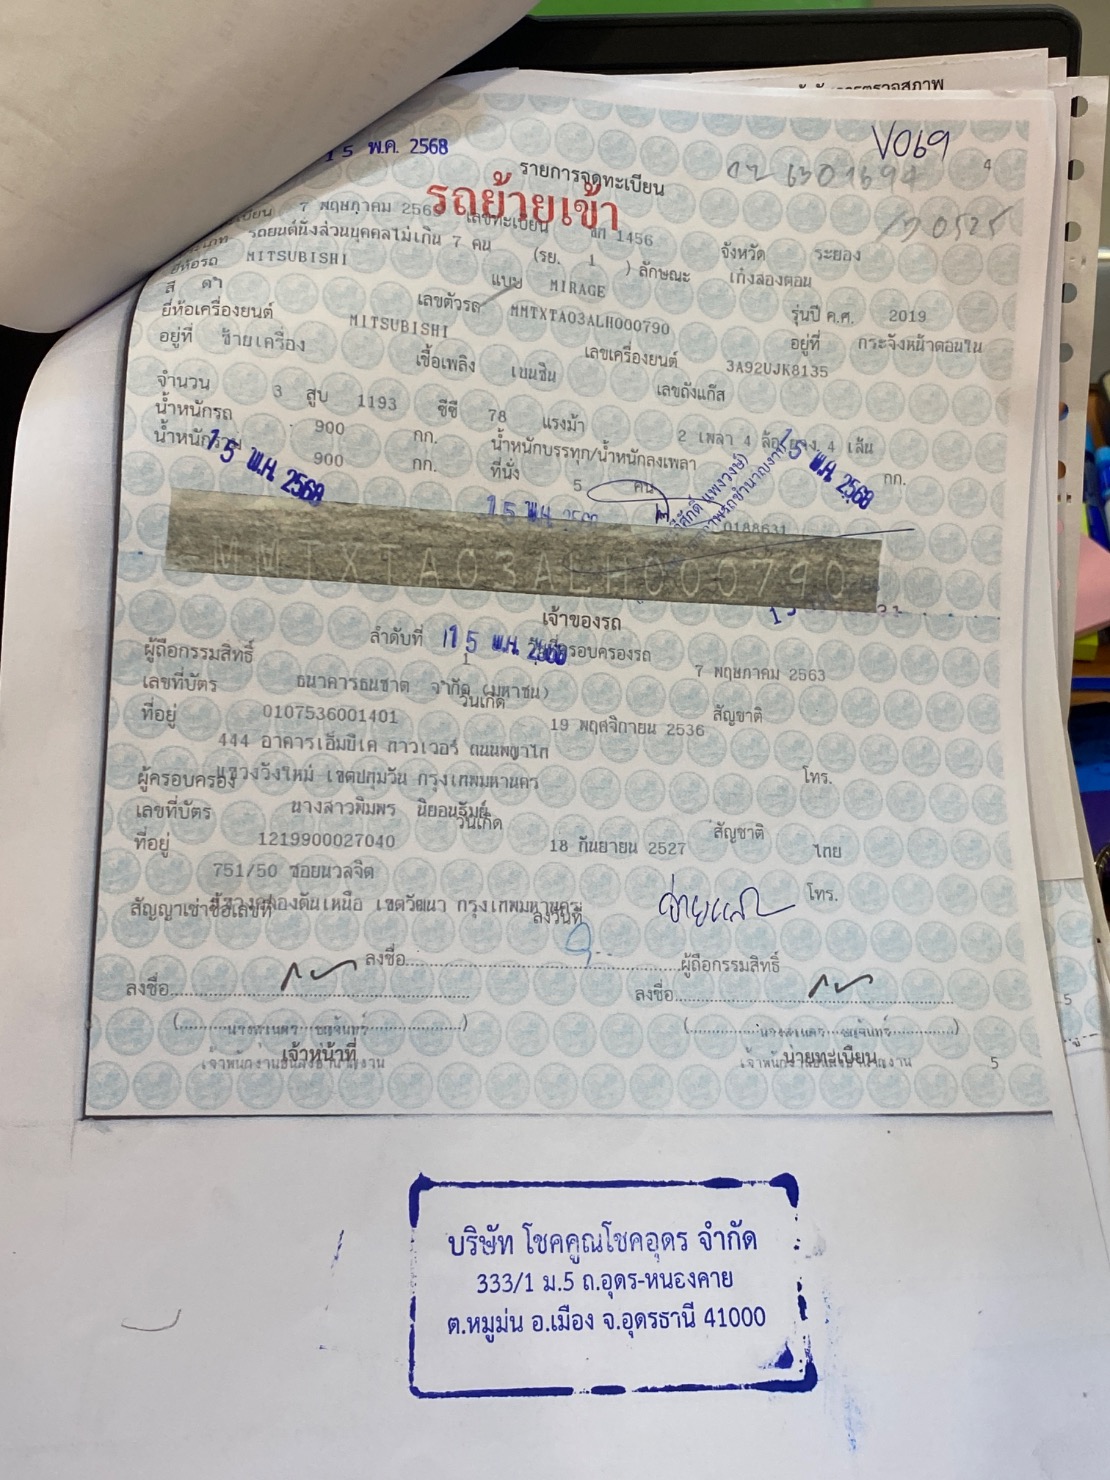 15 พ.ค. 2568
V069
4
รายการจดทะเบียน
รถย้ายเข้า
7 พฤษภาคม 256 เลขทะเบียน 1456 จังหวัด ระยอง
รถยนต์นั่งส่วนบุคคลไม่เกิน 7 คน (รย. 1 ) ลักษณะ เก๋งสองตอน
MITSUBISHI แบบ MIRAGE รุ่นปี ค.ศ. 2019
สี ดำ เลขตัวรถ MMTXTA03ALH000790 อยู่ที่ กระจังหน้าตอนใน
ยี่ห้อเครื่องยนต์ MITSUBISHI เลขเครื่องยนต์ 3A92UJK8135
อยู่ที่ ซ้ายเครื่อง เชื้อเพลิง เบนซิน เลขถังแก๊ส
จำนวน 3 สูบ 1193 ซีซี 78 แรงม้า 2 เพลา 4 ล้อ ยาง 4 เส้น
น้ำหนักรถ 900 กก. น้ำหนักบรรทุก/น้ำหนักลงเพลา กก.
น้ำหนักรวม 900 กก. ที่นั่ง 5 คน
15 พ.ค. 2568
15 พ.ค. 2568
0188631
MMTXTA03ALH000790
เจ้าของรถ
ลำดับที่ 1 วันที่ครอบครองรถ 7 พฤษภาคม 2563
15 พ.ค. 2568
ผู้ถือกรรมสิทธิ์ ธนาคารธนชาต จำกัด (มหาชน)
เลขที่บัตร 0107536001401 วันเกิด 19 พฤศจิกายน 2536 สัญชาติ
ที่อยู่ 444 อาคารเอ็มบีเค ทาวเวอร์ ถนนพญาไท
แขวงวังใหม่ เขตปทุมวัน กรุงเทพมหานคร โทร.
ผู้ครอบครอง นางสาวพิมพร
เลขที่บัตร 1219900027040 วันเกิด 18 กันยายน 2527 สัญชาติ ไทย
ที่อยู่ 751/50 ซอยนวลจิต
แขวงคลองตันเหนือ เขตวัฒนา กรุงเทพมหานคร โทร.
สัญญาเช่าซื้อเลขที่ ลงวันที่
ลงชื่อ ผู้ถือกรรมสิทธิ์
ลงชื่อ ลงชื่อ
เจ้าหน้าที่ นายทะเบียน
5
บริษัท โชคคูณโชคอุดร จำกัด
333/1 ม.5 ถ.อุดร-หนองคาย
ต.หมูม่น อ.เมือง จ.อุดรธานี 41000